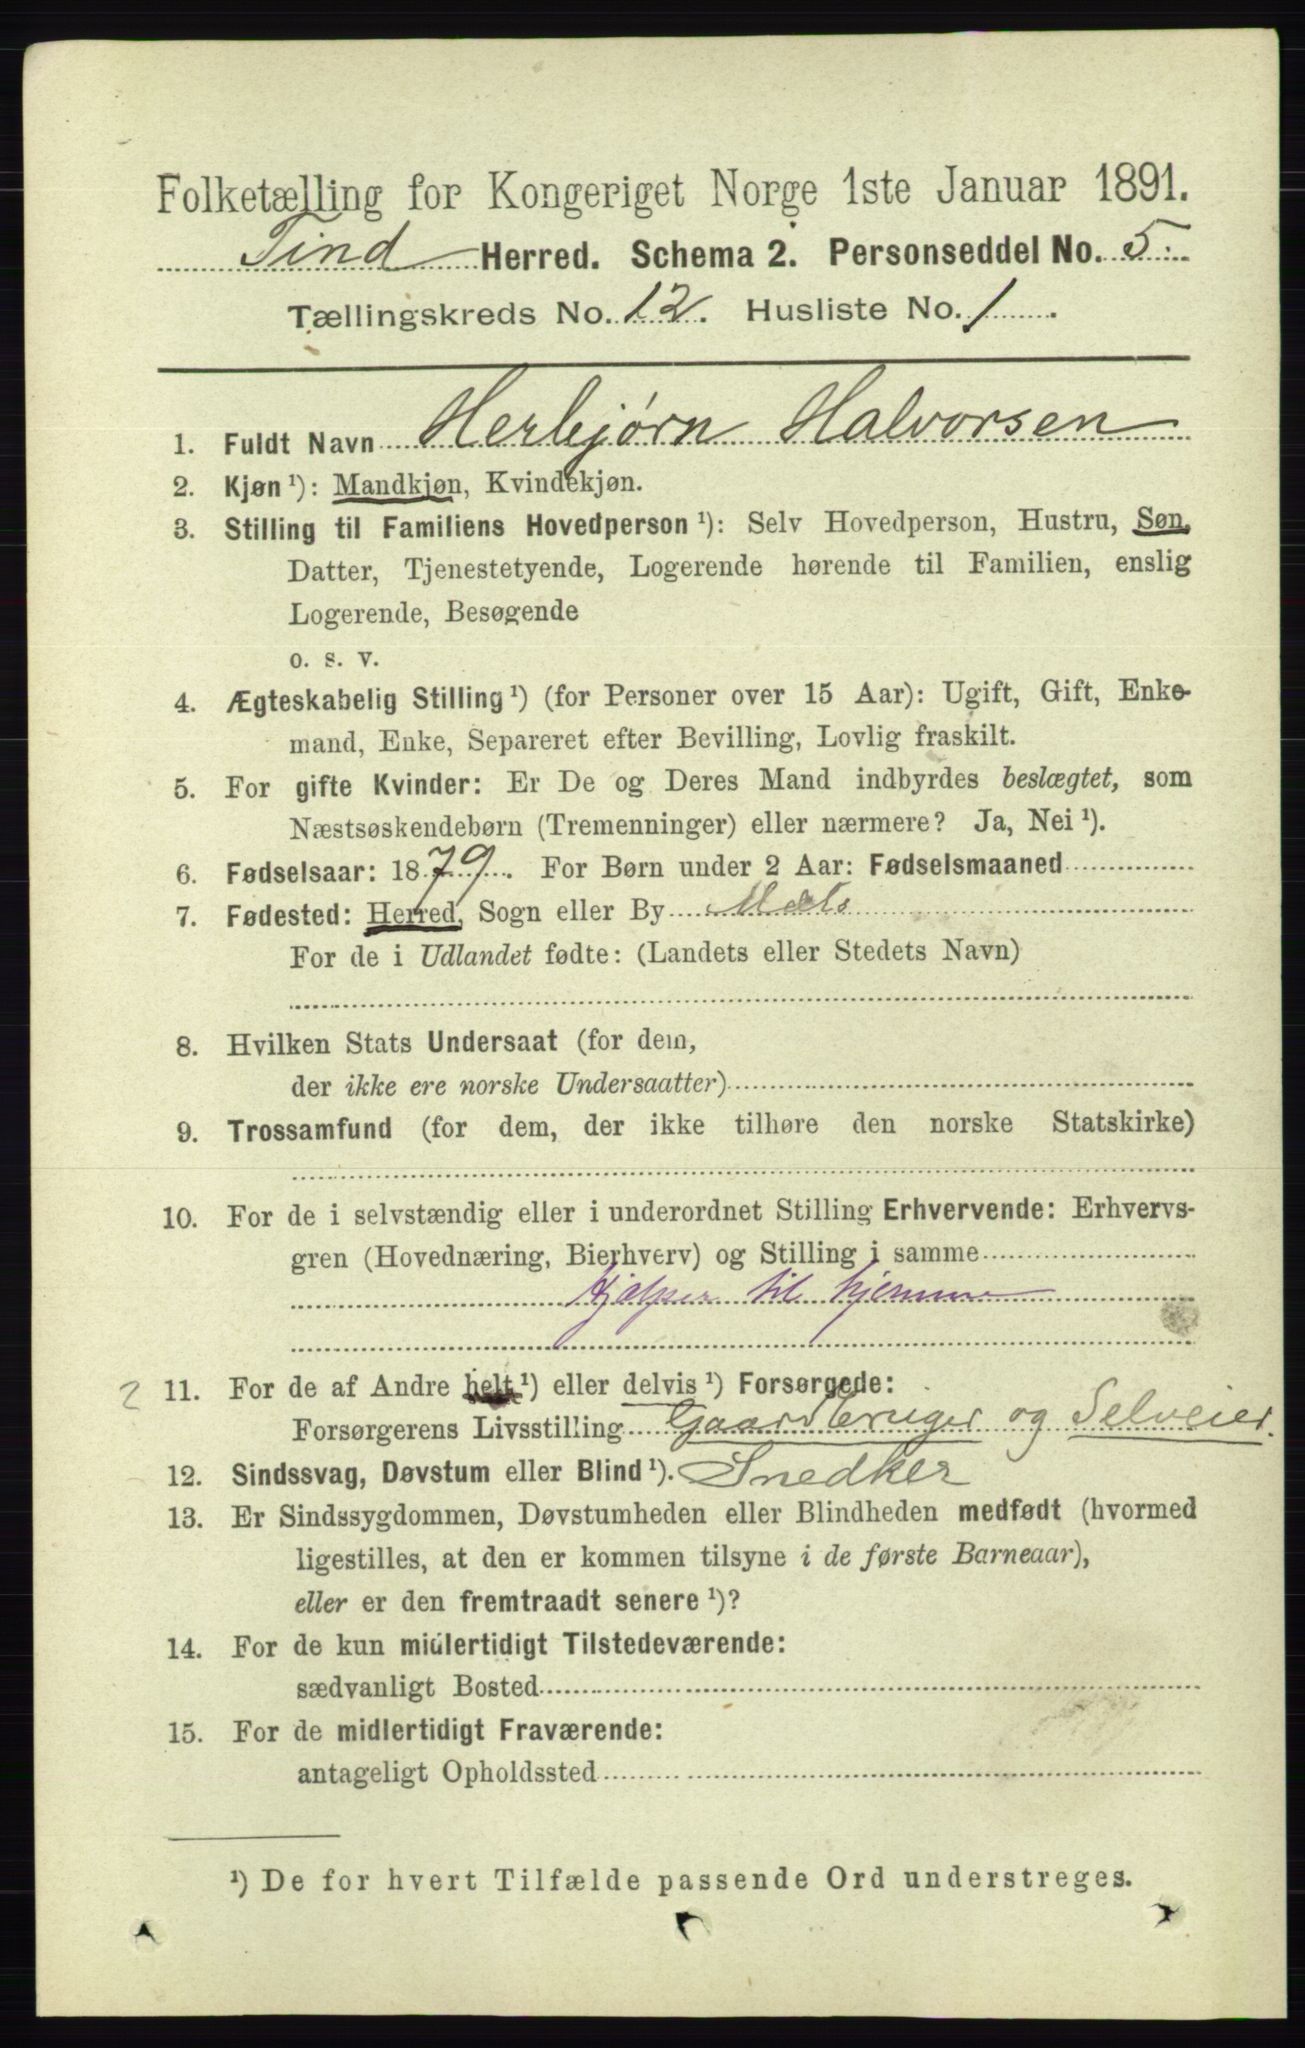 Folketælling for Kongeriget Norge 1ste Januar 1891.
Tind Herred. Schema 2. Personseddel No. 5.
Tællingskreds No. 12. Husliste No. 1
1. Fuldt Navn Herbjørn Halvorsen
2. Kjøn ¹): Mandkjøn, Kvindekjøn.
3. Stilling til Familiens Hovedperson ¹): Selv Hovedperson, Hustru, Søn,
Datter, Tjenestetyende, Logerende hørende til Familien, enslig
Logerende, Besøgende
o. s. v.
4. Ægteskabelig Stilling ¹) (for Personer over 15 Aar): Ugift, Gift, Enke-
mand, Enke, Separeret efter Bevilling, Lovlig fraskilt.
5. For gifte Kvinder: Er De og Deres Mand indbyrdes beslægtet, som
Næstsøskendebørn (Tremenninger) eller nærmere? Ja, Nei ¹).
6. Fødselsaar: 1879. For Børn under 2 Aar: Fødselsmaaned
7. Fødested: Herred, Sogn eller By Mæls
For de i Udlandet fødte: (Landets eller Stedets Navn)
8. Hvilken Stats Undersaat (for dem,
der ikke ere norske Undersaatter)
9. Trossamfund (for dem, der ikke tilhøre den norske Statskirke)
10. For de i selvstændig eller i underordnet Stilling Erhvervende: Erhvervs-
gren (Hovednæring, Bierhverv) og Stilling i samme
Hjælper til hjemme
2 11. For de af Andre helt ¹) eller delvis ¹) Forsørgede:
Forsørgerens Livsstilling Gaardbruger og Selveier.
12. Sindssvag, Døvstum eller Blind ¹). Snedker
13. Er Sindssygdommen, Døvstumheden eller Blindheden medfødt (hvormed
ligestilles, at den er kommen tilsyne i de første Barneaar),
eller er den fremtraadt senere ¹)?
14. For de kun midlertidigt Tilstedeværende:
sædvanligt Bosted
15. For de midlertidigt Fraværende:
antageligt Opholdssted
¹) De for hvert Tilfælde passende Ord understreges.